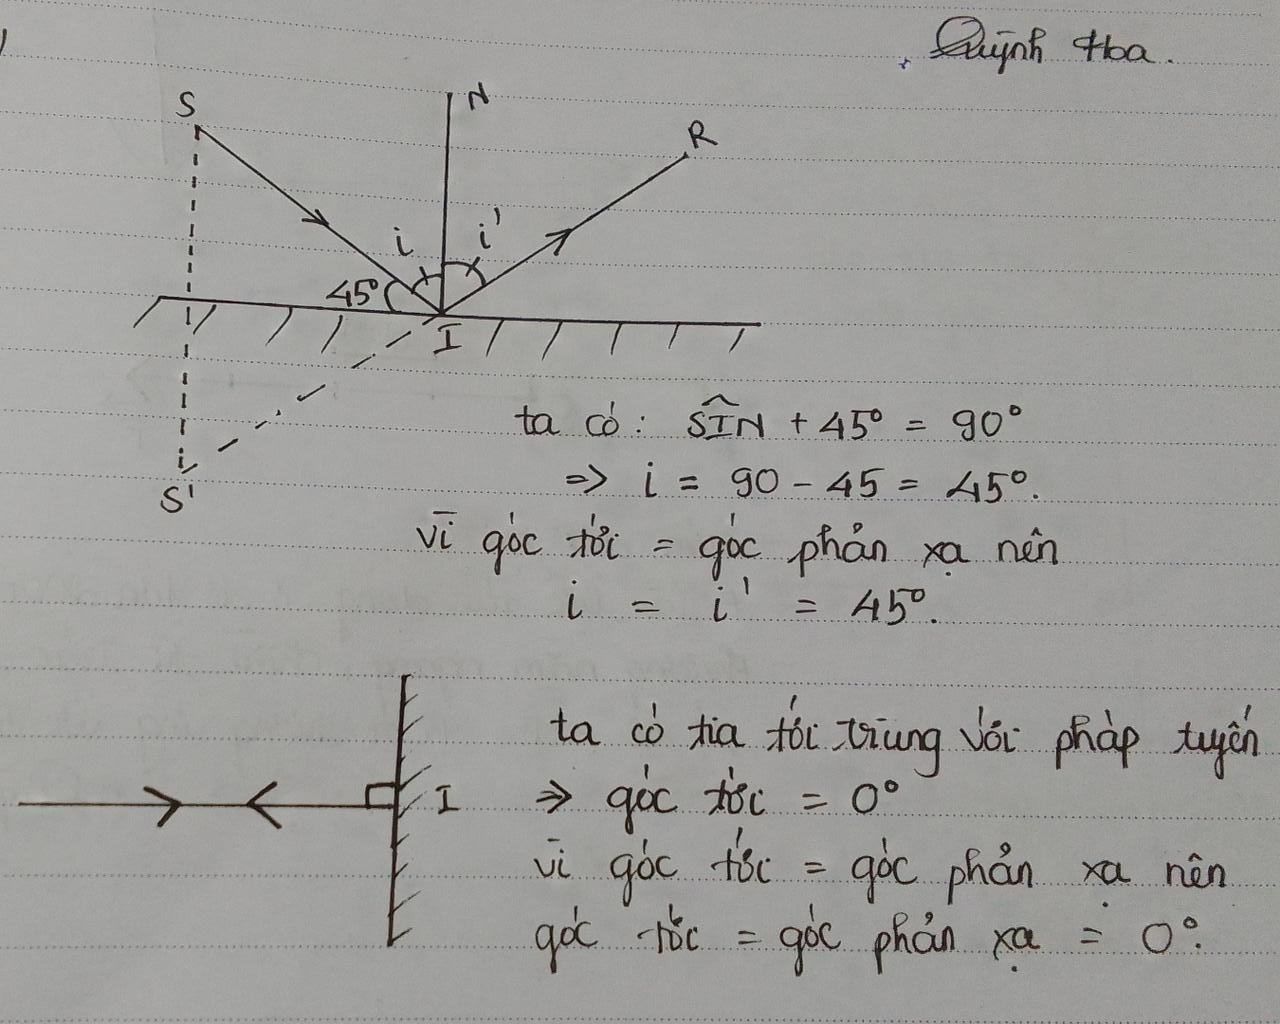 Quỳnh Hoa.
S
N
R
i
i'
45°
I
S'
ta có: SIN + 45° = 90°
=> i = 90 - 45 = 45°.
vì góc tới = góc phản xạ nên
i = i' = 45°.
ta có tia tới trùng với pháp tuyến
I
=> góc tới = 0°
vì góc tới = góc phản xạ nên
góc tới = góc phản xạ = 0°.